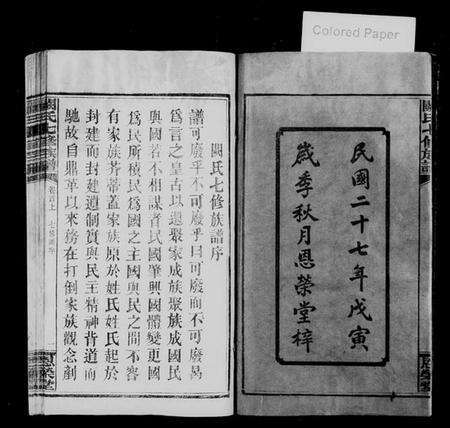 Colored Paper
民國二十七年戊寅
歲季秋月恩榮堂梓
闕氏七修族譜序
譜可廢乎不可廢乎曰可廢而不可廢曷
爲言之皇古以還聚家成族聚族成國民
與國若不相謀者民國肇興國體變更國
爲民所積民爲國之主國與民之間不容
有家族芥蒂蓋家族原於姓氏姓氏起於
封建而封建遺制實與民主精神背道而
馳故自鼎革以來務在打倒家族觀念剷
闕氏七修族譜 卷首上